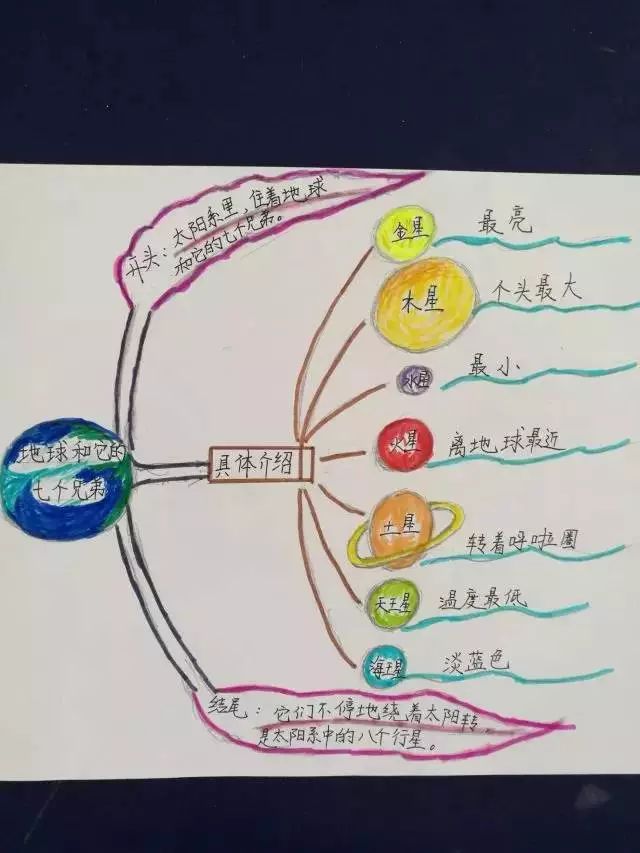 开头：太阳系里，住着地球
和它的七个兄弟。
地球和它的
七个兄弟
具体介绍
金星 最亮
木星 个头最大
水星 最小
火星 离地球最近
土星 转着呼啦圈
天王星 温度最低
海王星 淡蓝色
结尾：它们不停地绕着太阳转，
是太阳系中的八个行星。